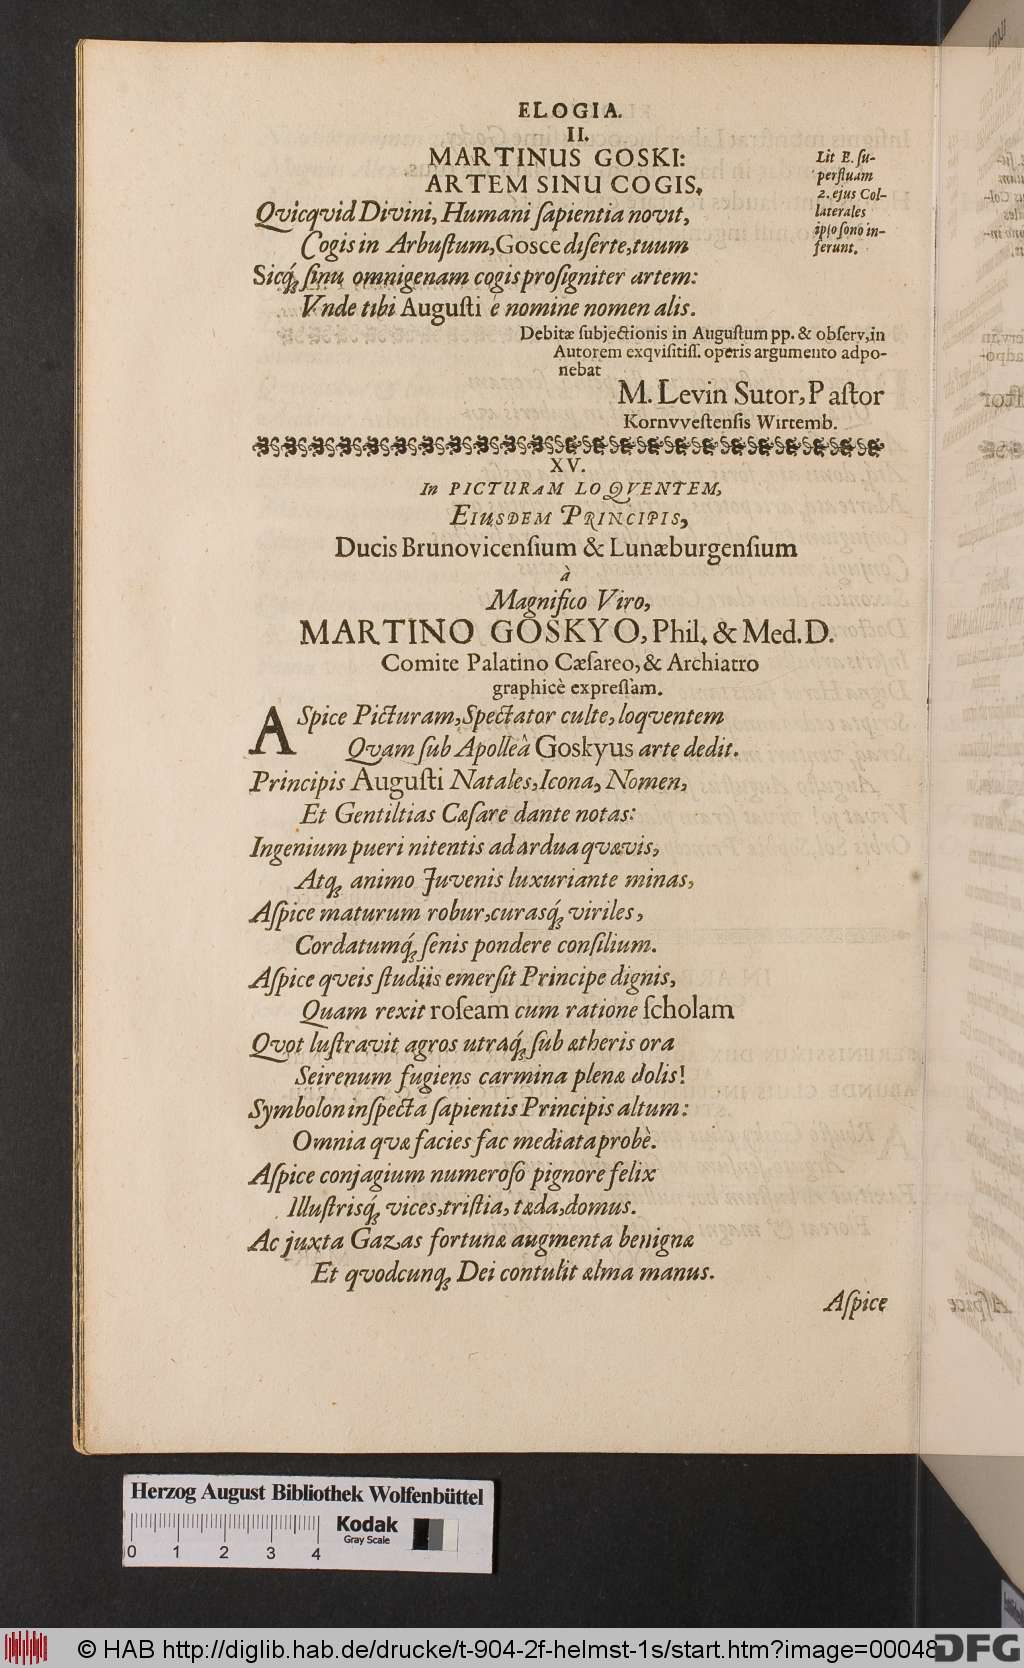 ELOGIA.
II.
MARTINUS GOSKI:
ARTEM SINU COGIS,
Lit E. ſu-
perſluam
2. ejus Col-
laterales
ipſo ſono in-
ferunt.
Qvicqvid Divini, Humani ſapientia novit,
Cogis in Arbuſtum, Gosce diſerte, tuum
Sicq́; ſinu omnigenam cogis proſigniter artem:
Vnde tibi Auguſti è nomine nomen alis.
Debitæ ſubjectionis in Auguſtum pp. & obſerv, in
Autorem exqviſitiſſ. operis argumento adpo-
nebat
M. Levin Sutor, Paſtor
Kornvveſtenſis Wirtemb.
XV.
In PICTURAM LOQVENTEM,
EIUSDEM PRINCIPIS,
Ducis Brunovicenſium & Lunæburgenſium
à
Magnifico Viro,
MARTINO GOSKYO, Phil. & Med. D.
Comite Palatino Cæſareo, & Archiatro
graphicè expreſſam.
ASpice Picturam, Spectator culte, loqventem
Qvam ſub Apolleâ Goskyus arte dedit.
Principis Auguſti Natales, Icona, Nomen,
Et Gentiltias Cæſare dante notas:
Ingenium pueri nitentis ad ardua qvævis,
Atq; animo Juvenis luxuriante minas,
Aſpice maturum robur, curasq́; viriles,
Cordatumq́; ſenis pondere conſilium.
Aſpice qveis ſtudiis emerſit Principe dignis,
Quam rexit roſeam cum ratione ſcholam
Qvot luſtravit agros utraq́; ſub ætheris ora
Seirenum fugiens carmina plenæ dolis!
Symbolon inſpecta ſapientis Principis altum:
Omnia qvæ facies fac mediata probè.
Aſpice conjagium numeroſo pignore felix
Illuſtrisq́; vices, triſtia, tæda, domus.
Ac juxta Gazas fortunæ augmenta benignæ
Et qvodcunq; Dei contulit alma manus.
Aſpice
Herzog August Bibliothek Wolfenbüttel
Kodak
Gray Scale
0 1 2 3 4
© HAB http://diglib.hab.de/drucke/t-904-2f-helmst-1s/start.htm?image=00048
DFG